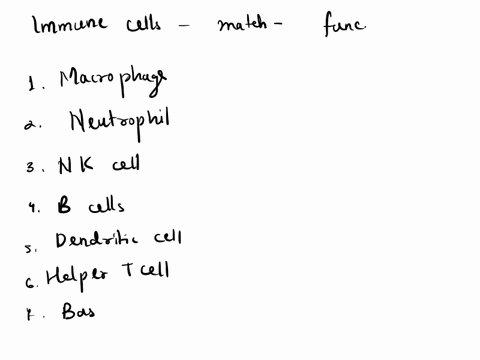 Immune cells - match - func
1. Macrophage
2. Neutrophil
3. NK cell
4. B cells
5. Dendritic cell
6. Helper T cell
7. Bas